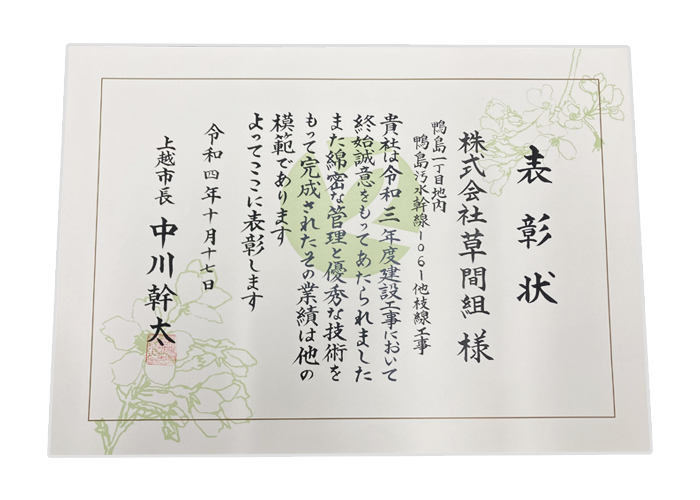 表彰状
株式会社草間組 様
鴨島一丁目地内
鴨島汚水幹線1061他枝線工事
貴社は令和三年度建設工事において
終始誠意をもってあたられました
また綿密な管理と優秀な技術を
もって完成されたその業績は他の
模範であります
よってここに表彰します
令和四年十月十七日
上越市長 中川幹太